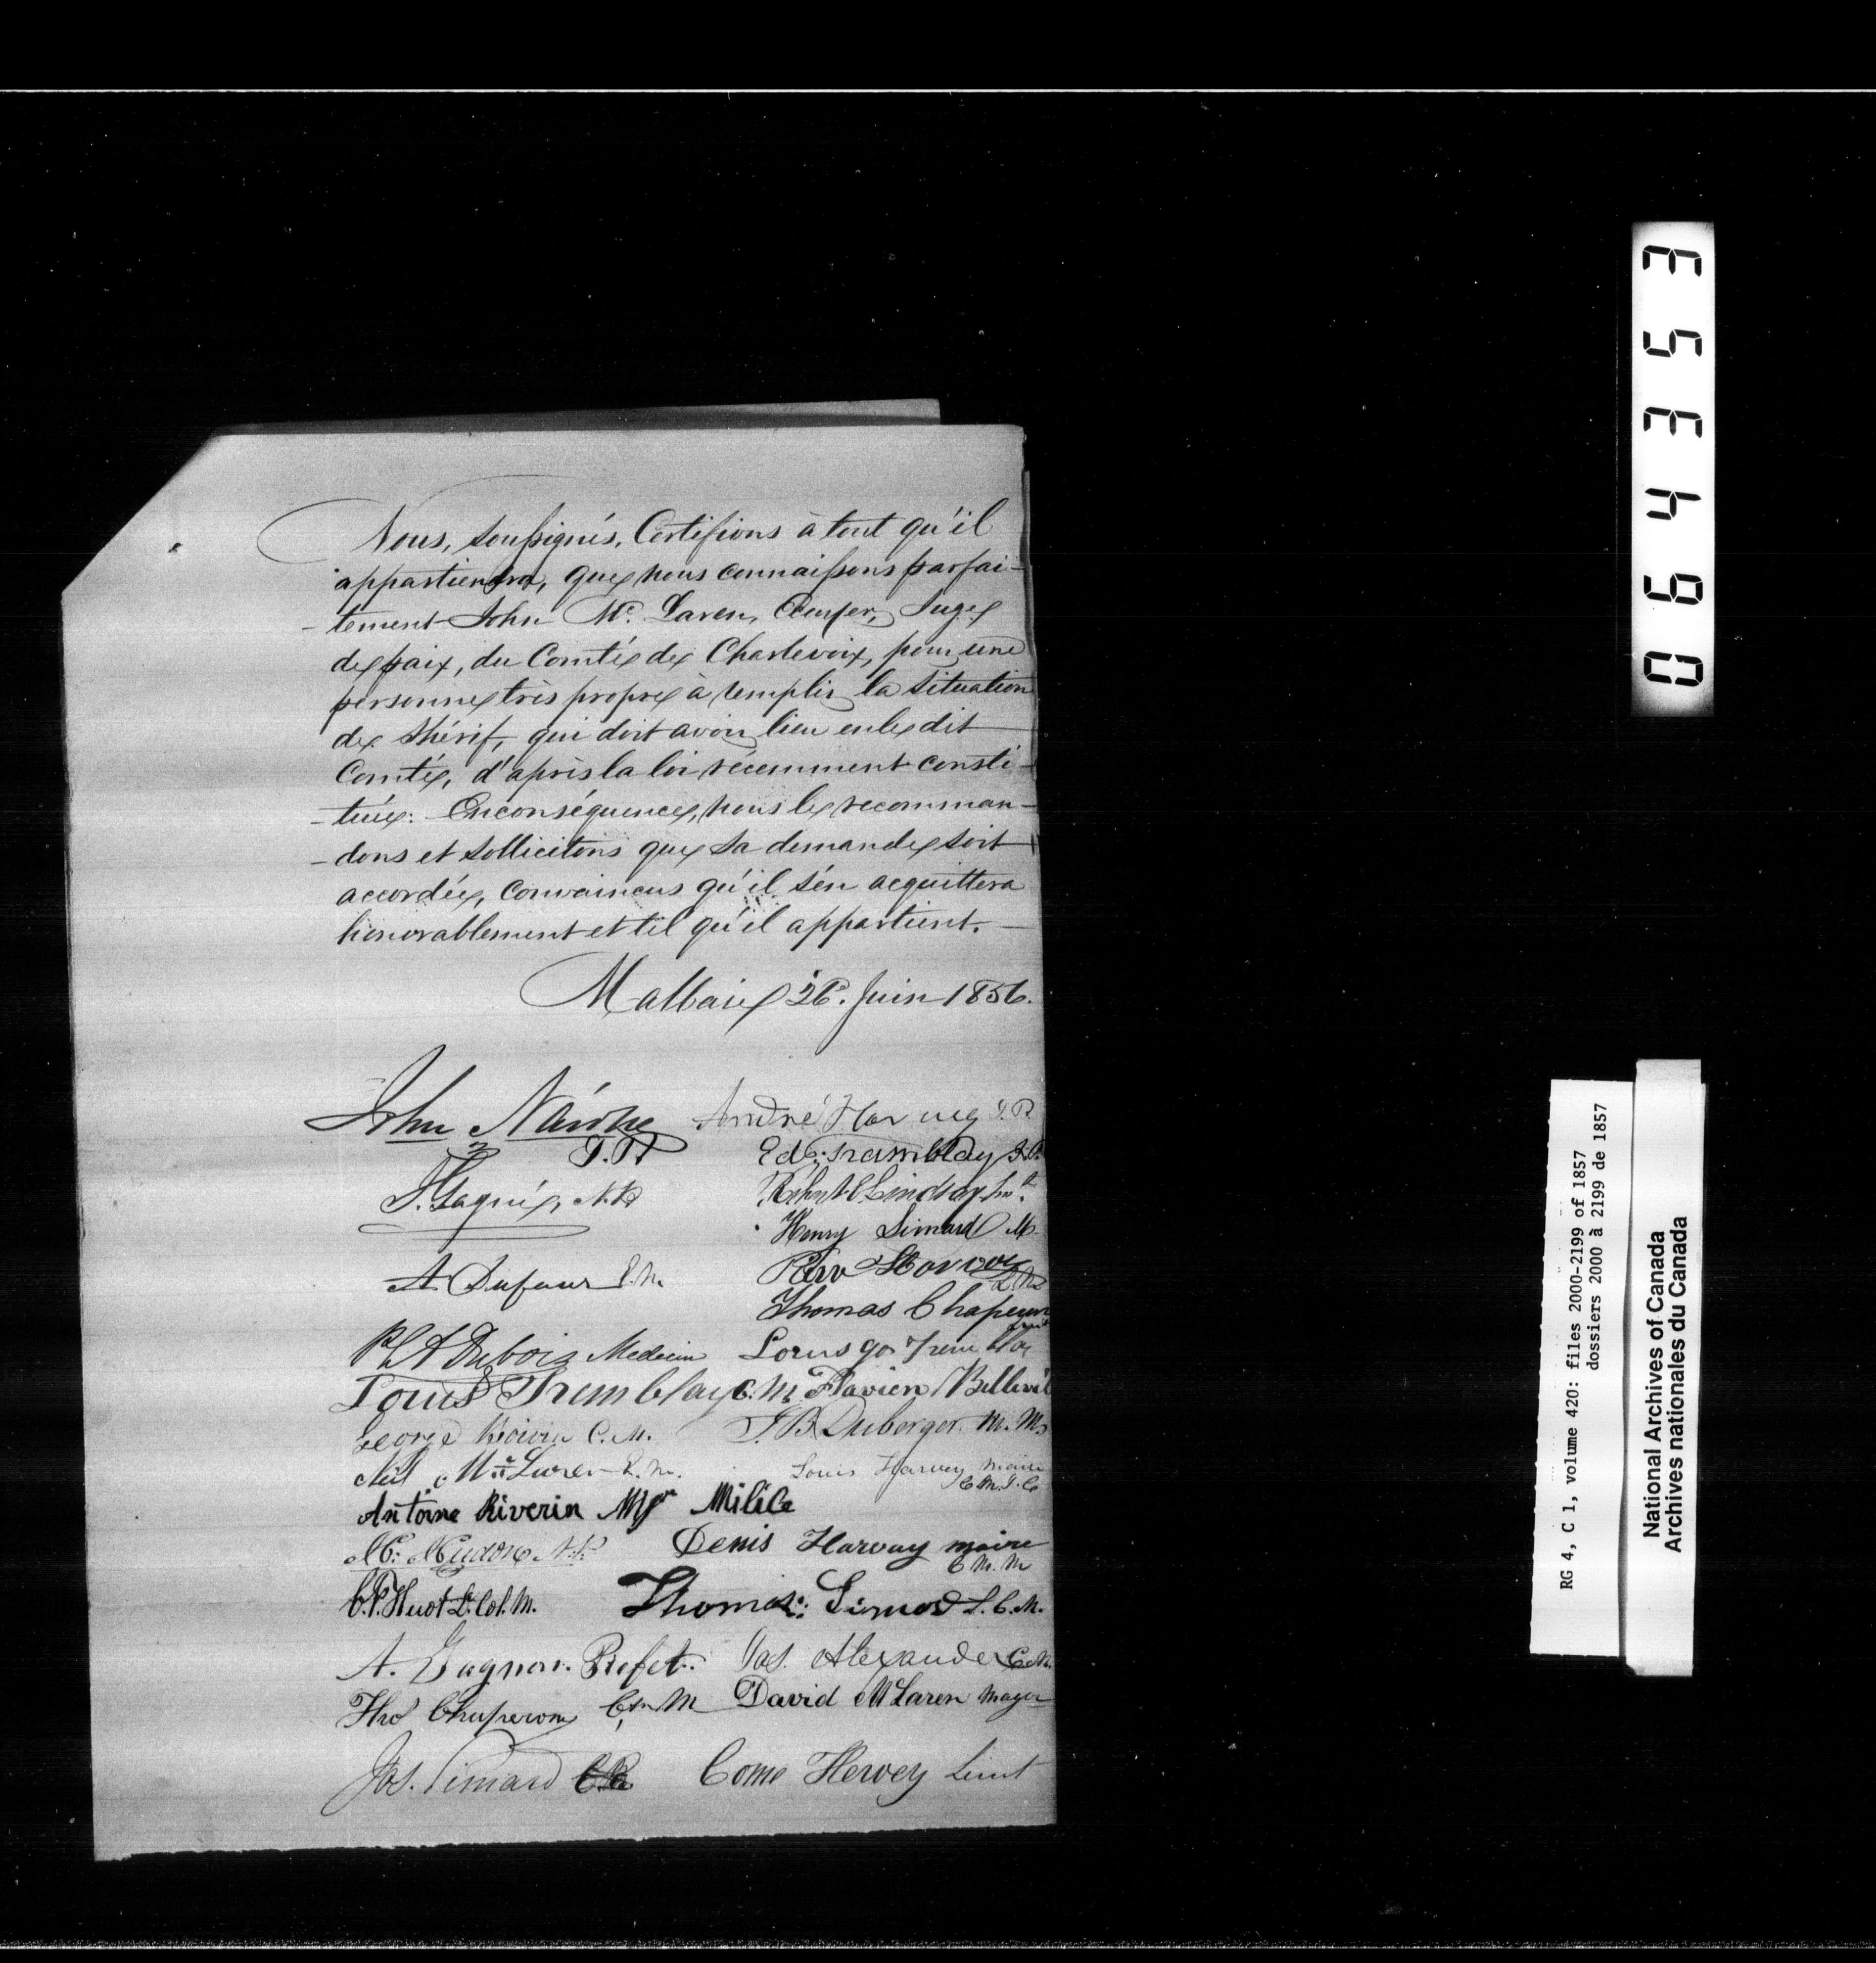 Nous, soussignés, Certifions à tout qu'il
appartiendra, que nous connaissons parfai-
-tement John Mc. Laren, Ecuyer, Juge
de paix, du Comté de Charlevoix, pour une
personne très propre à remplir la situation
de Shérif, qui doit avoir lieu en le dit
Comté, d'après la loi récemment consti-
-tuée: Enconséquence, nous le recomman-
-dons et sollicitons que sa demande soit
accordée, convaincus qu'il s'en acquittera
honorablement et tel qu'il appartient.
Malbaie 26. Juin 1856.
John Nairne André Harvey J.P.
J.P. Ed: Tramblay J.P.
Lindsay
N.P.
Henry Simard M.
A Dufour L.M.
Thomas Chaperon
Dubois Medecin
Louis Tremblay C.M. Flavien
George C.M. J.B. Duberger M.M.
Neil McLaren L.M. Louis Harvey maire
Antoine Riverin Milice
N.P. Denis Harvay maire
C.P. Huot Lt. Col. M. Thomas: Simard L.C.M.
A. Gagnon. Prefet. Jas. Alexander C.M.
Tho Chaperon M David McLaren Mayor
Jos. Simard Come Hervey Lieut
064353
RG 4, C 1, volume 420: files 2000-2199 of 1857
dossiers 2000 à 2199 de 1857
National Archives of Canada
Archives nationales du Canada